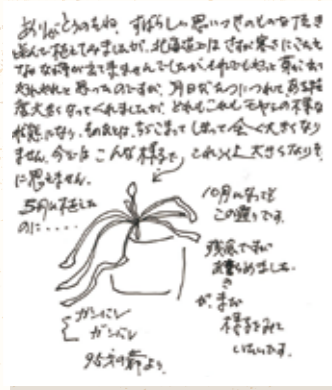 ありがとうのたね、すばらしい思いつきのものを頂き
喜んで植えてみましたが、北海道ではさすが寒さに
なかなか芽が出て来ませんでしたが、それでもやっと芽が出て
と思ったのですが、月日がたつにつれてある程
度大きくなってくれましたが、どれもこれもモヤシの様な
状態になり、そのあとは、ちぢこまってしまって全く大きくなり
ません。今ではこんな様子で、これ以上大きくなりそう
に思えません。
5月に植えた
のに‥‥
10月になっても
この通りです。
残念ですが
あきらめました。
が、まだ
様子をみて
いたいです。
ガンバレ
ガンバレ
95才の爺より